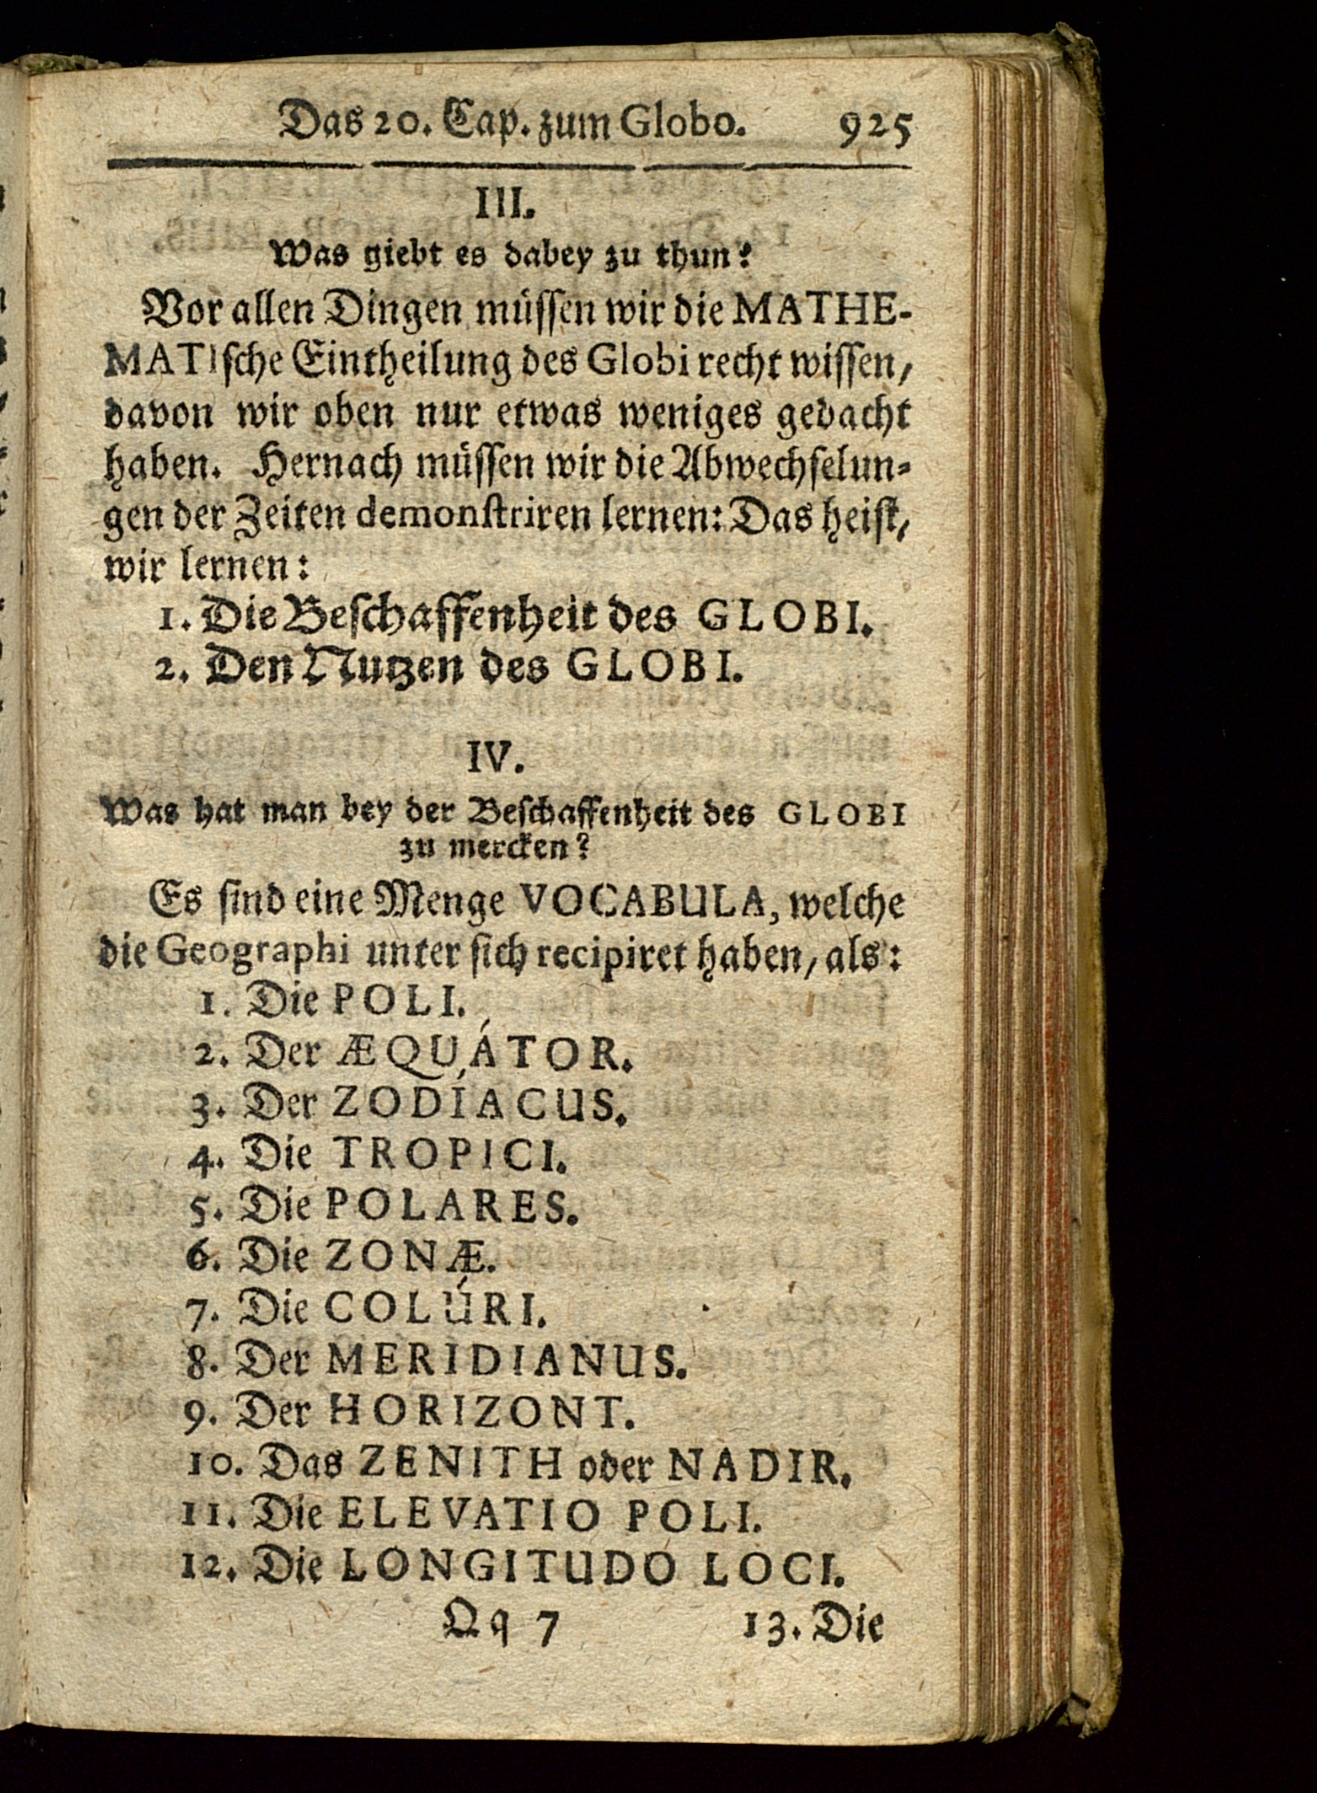 Das 20. Cap. zum Globo. 925
III.
Was giebt es dabey zu thun?
Vor allen Dingen müssen wir die MATHE-
MATIsche Eintheilung des Globi recht wissen,
davon wir oben nur etwas weniges gedacht
haben. Hernach müssen wir die Abwechselun-
gen der Zeiten demonstriren lernen: Das heist,
wir lernen:
1. Die Beschaffenheit des GLOBI.
2. Den Nutzen des GLOBI.
IV.
Was hat man bey der Beschaffenheit des GLOBI
zu mercken?
Es sind eine Menge VOCABULA, welche
die Geographi unter sich recipiret haben, als:
1. Die POLI.
2. Der ÆQUÁTOR.
3. Der ZODÍACUS.
4. Die TROPICI.
5. Die POLARES.
6. Die ZONÆ.
7. Die COLÚRI.
8. Der MERIDIANUS.
9. Der HORIZONT.
10. Das ZENITH oder NADIR.
11. Die ELEVATIO POLI.
12. Die LONGITUDO LOCI.
Qq 7 13. Die